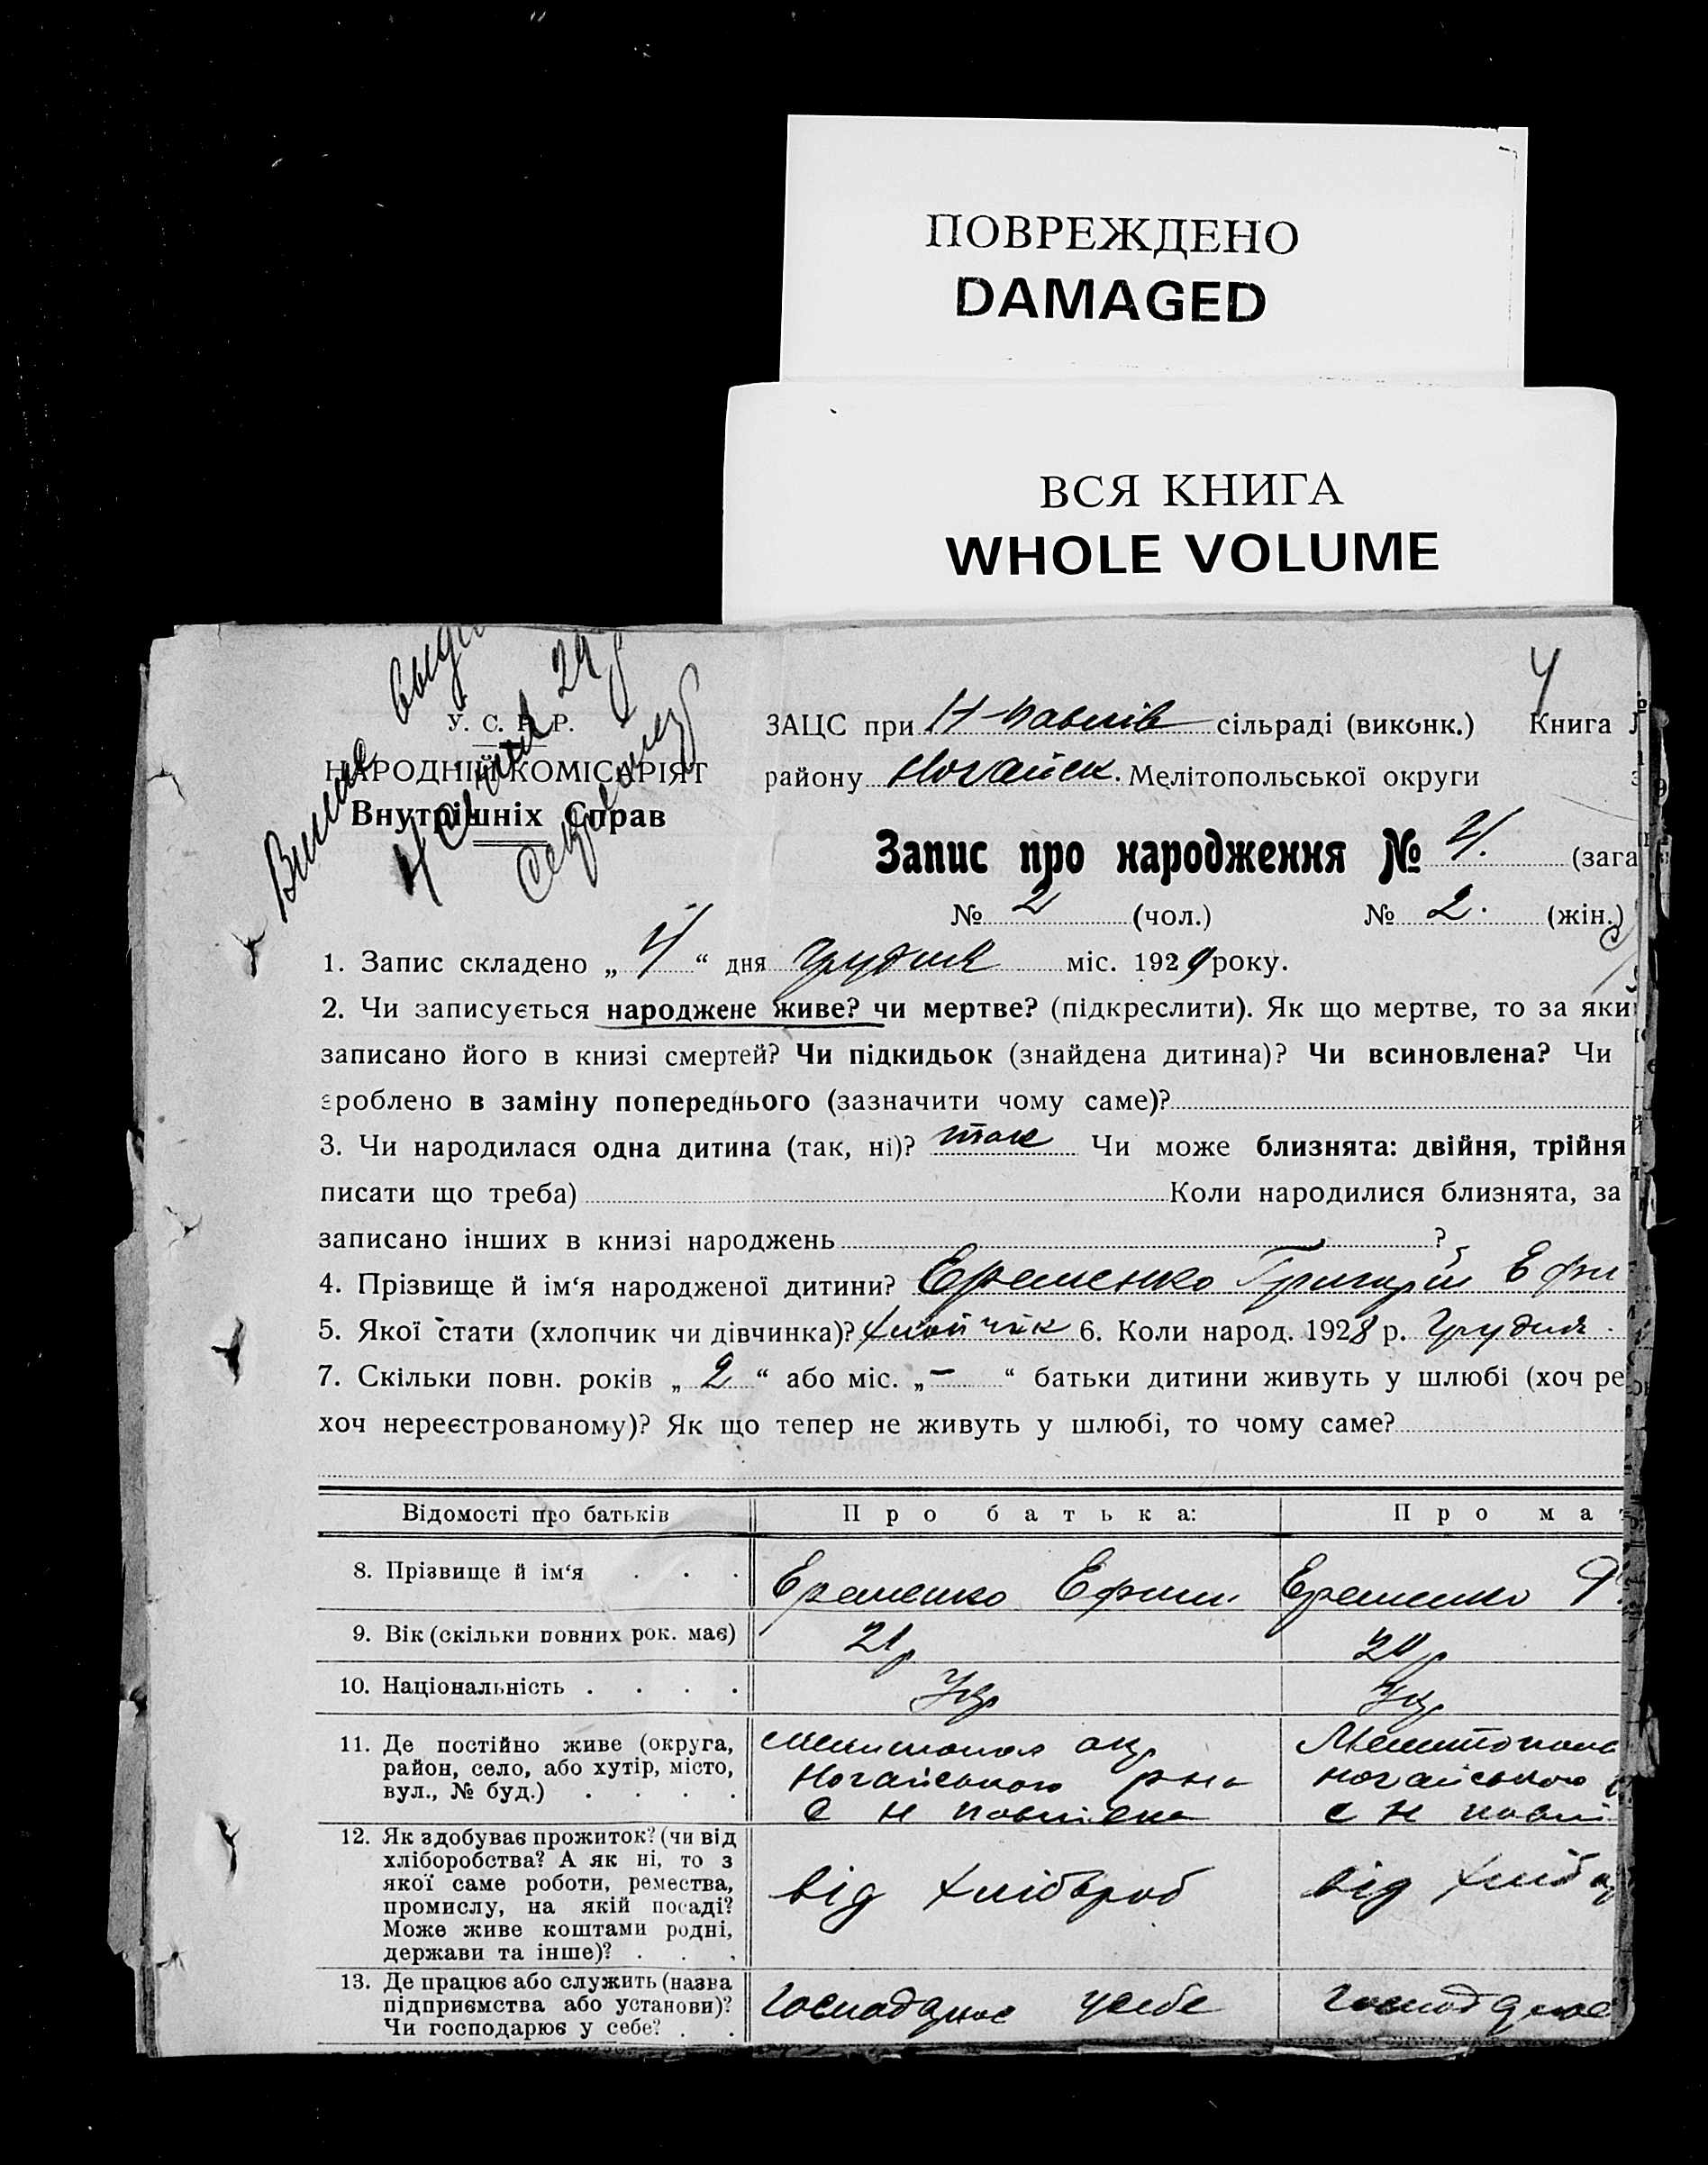 ПОВРЕЖДЕНО
DAMAGED
ВСЯ КНИГА
WHOLE VOLUME
4
У. С. Р. Р.
НАРОДНІЙ КОМІСАРІЯТ
Внутрішніх Справ
ЗАЦС при Н-Павлів сільраді (виконк.) Книга
району Ногайск. Мелітопольської округи
Запис про народження № 4. (зага
№ 2 (чол.) № 2. (жін.)
1. Запис складено „ 4 “ дня грудня міс. 1929 року.
2. Чи записується народжене живе? чи мертве? (підкреслити). Як що мертве, то за яки
записано його в книзі смертей? Чи підкидьок (знайдена дитина)? Чи всиновлена? Чи
зроблено в заміну попереднього (зазначити чому саме)?
3. Чи народилася одна дитина (так, ні)? так Чи може близнята: двійня, трійня
писати що треба) Коли народилися близнята, за
записано інших в книзі народжень ?
4. Прізвище й ім‘я народженої дитини? Еременко Григорій Ефи
5. Якої стати (хлопчик чи дівчинка)? хлопчик 6. Коли народ. 1928 р. Грудня
7. Скільки повн. років „ 2 “ або міс. „ – “ батьки дитини живуть у шлюбі (хоч ре
хоч нереєстрованому)? Як що тепер не живуть у шлюбі, то чому саме?
Відомості про батьків Про батька: Про ма
8. Прізвище й ім‘я . . . Еременко Ефим Еременко
9. Вік (скільки повних рок. має) 21р 20р
10. Національність . . . . Укр Укр
11. Де постійно живе (округа, район, село, або хутір, місто, вул., № буд.) . . . .
Мелитопол окр Мелитопол
Ногайського р-на Ногайського
С Н Павлівка с Н Павлі
12. Як здобуває прожиток? (чи від хліборобства? А як ні, то з якої саме роботи, ремества, промислу, на якій посаді? Може живе коштами родні, держави та інше)? . . .
від хлібороб від хлібо
13. Де працює або служить (назва підприємства або установи)? Чи господарює у себе? . .
господарює у себе господарює